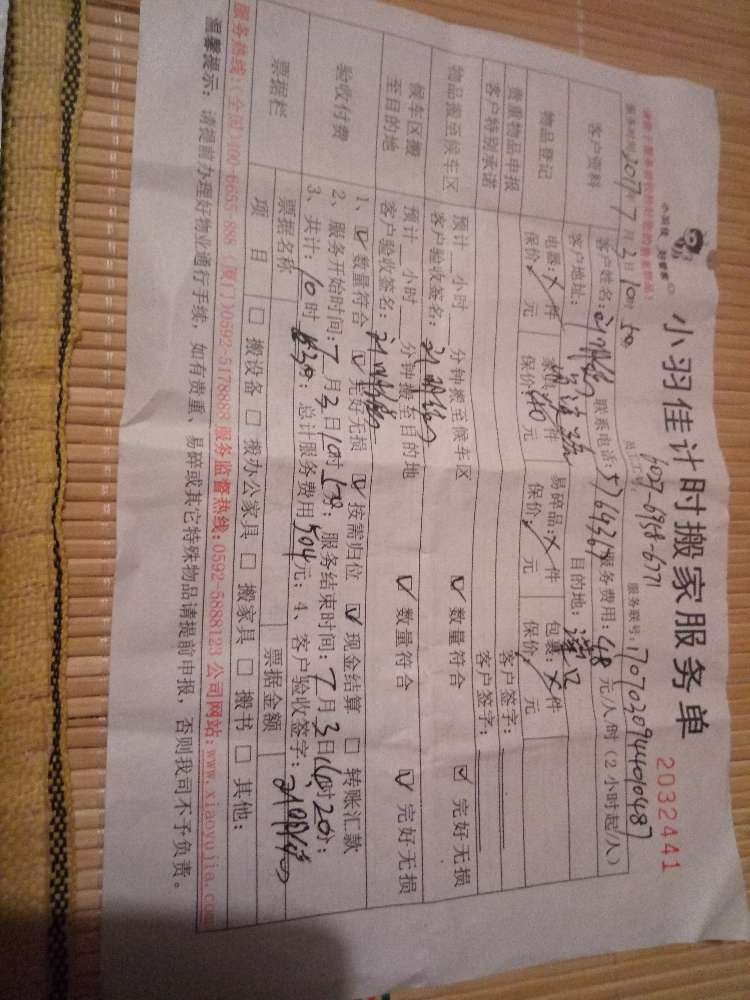 小羽佳计时搬家服务单
2032441
小羽佳 好管家
服务联号:1707020944010487
员工工号: 6027-6958-6771
服务时间 2017年7月3日10时50
客户资料
客户姓名: 联系电话:5764367 服务费用:48元/人/时(2小时起/人)
客户地址: 目的地:
物品登记
电器:X件 家俱: 件 易碎品:X件 包裹:X件
保价: 元 保价: 元 保价: 元 保价: 元
贵重物品申报 客户签字:
客户特别承诺 客户签字:
物品搬至候车区
预计 小时 分钟搬至候车区 ☑ 数量符合 ☑ 完好无损
客户验收签名:
候车区搬至目的地
预计 小时 分钟搬至目的地 ☑ 数量符合 ☑ 完好无损
客户验收签名:
验收付费
1、☑ 数量符合 ☑ 完好无损 ☑ 按需归位 ☑ 现金结算 □ 转账汇款
2、服务开始时间:7月3日10时50分;服务结束时间:7月3日14时20分;
3、共计:10时 30分;总计服务费用504元;4、客户验收签字:
票据栏
票据名称 票据金额
项目 □ 搬设备 □ 搬办公家具 □ 搬家具 □ 搬书 □ 其他:
服务热线:全国)400-6655-888 (厦门)0592-5178888 服务监督热线:0592-5888123 公司网站:www.xiaoyujia.com
温馨提示:请提前办理好物业通行手续,如有贵重、易碎或其它特殊物品请提前申报,否则我司不予负责。